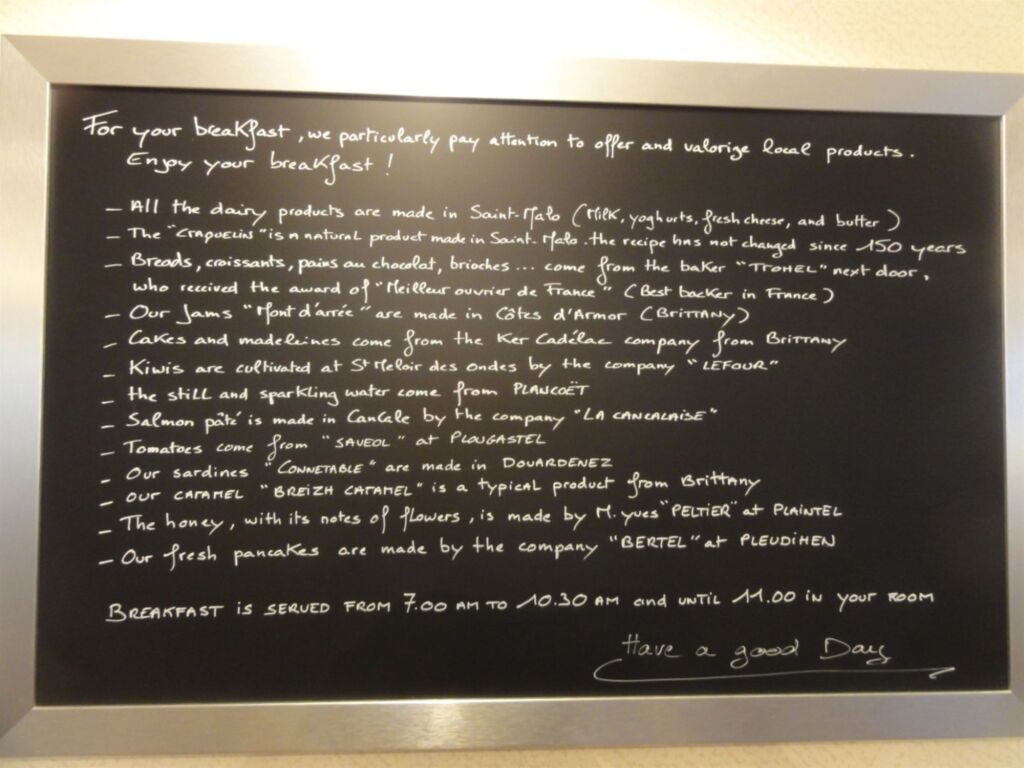 For your breakfast, we particularly pay attention to offer and valorize local products.
Enjoy your breakfast !
- All the dairy products are made in Saint-Malo (Milk, yoghurts, fresh cheese, and butter)
- The "CRAQUELIN" is a natural product made in Saint-Malo. the recipe has not changed since 150 years
- Breads, croissants, pains au chocolat, brioches... come from the baker "TROHEL" next door,
who received the award of "Meilleur ouvrier de France" (Best backer in France)
- Our Jams "Mont d'arrée" are made in Côtes d'Armor (BRITTANY)
- Cakes and madeleines come from the Ker Cadélac company from BRITTANY
- Kiwis are cultivated at St Meloir des ondes by the company "LEFOUR"
- the still and sparkling water come from PLANCOËT
- Salmon pâté is made in Cancale by the company "LA CANCALAISE"
- Tomatoes come from "SAVEOL" at PLOUGASTEL
- Our sardines "CONNETABLE" are made in DOUARDENEZ
- OUR CARAMEL "BREIZH CARAMEL" is a typical product from Brittany
- The honey, with its notes of flowers, is made by M. yves "PELTIER" at PLAINTEL
- Our fresh pancakes are made by the company "BERTEL" at PLEUDIHEN
BREAKFAST is SERVED FROM 7.00 AM TO 10.30 AM and UNTIL 11.00 IN YOUR ROOM
Have a good Day